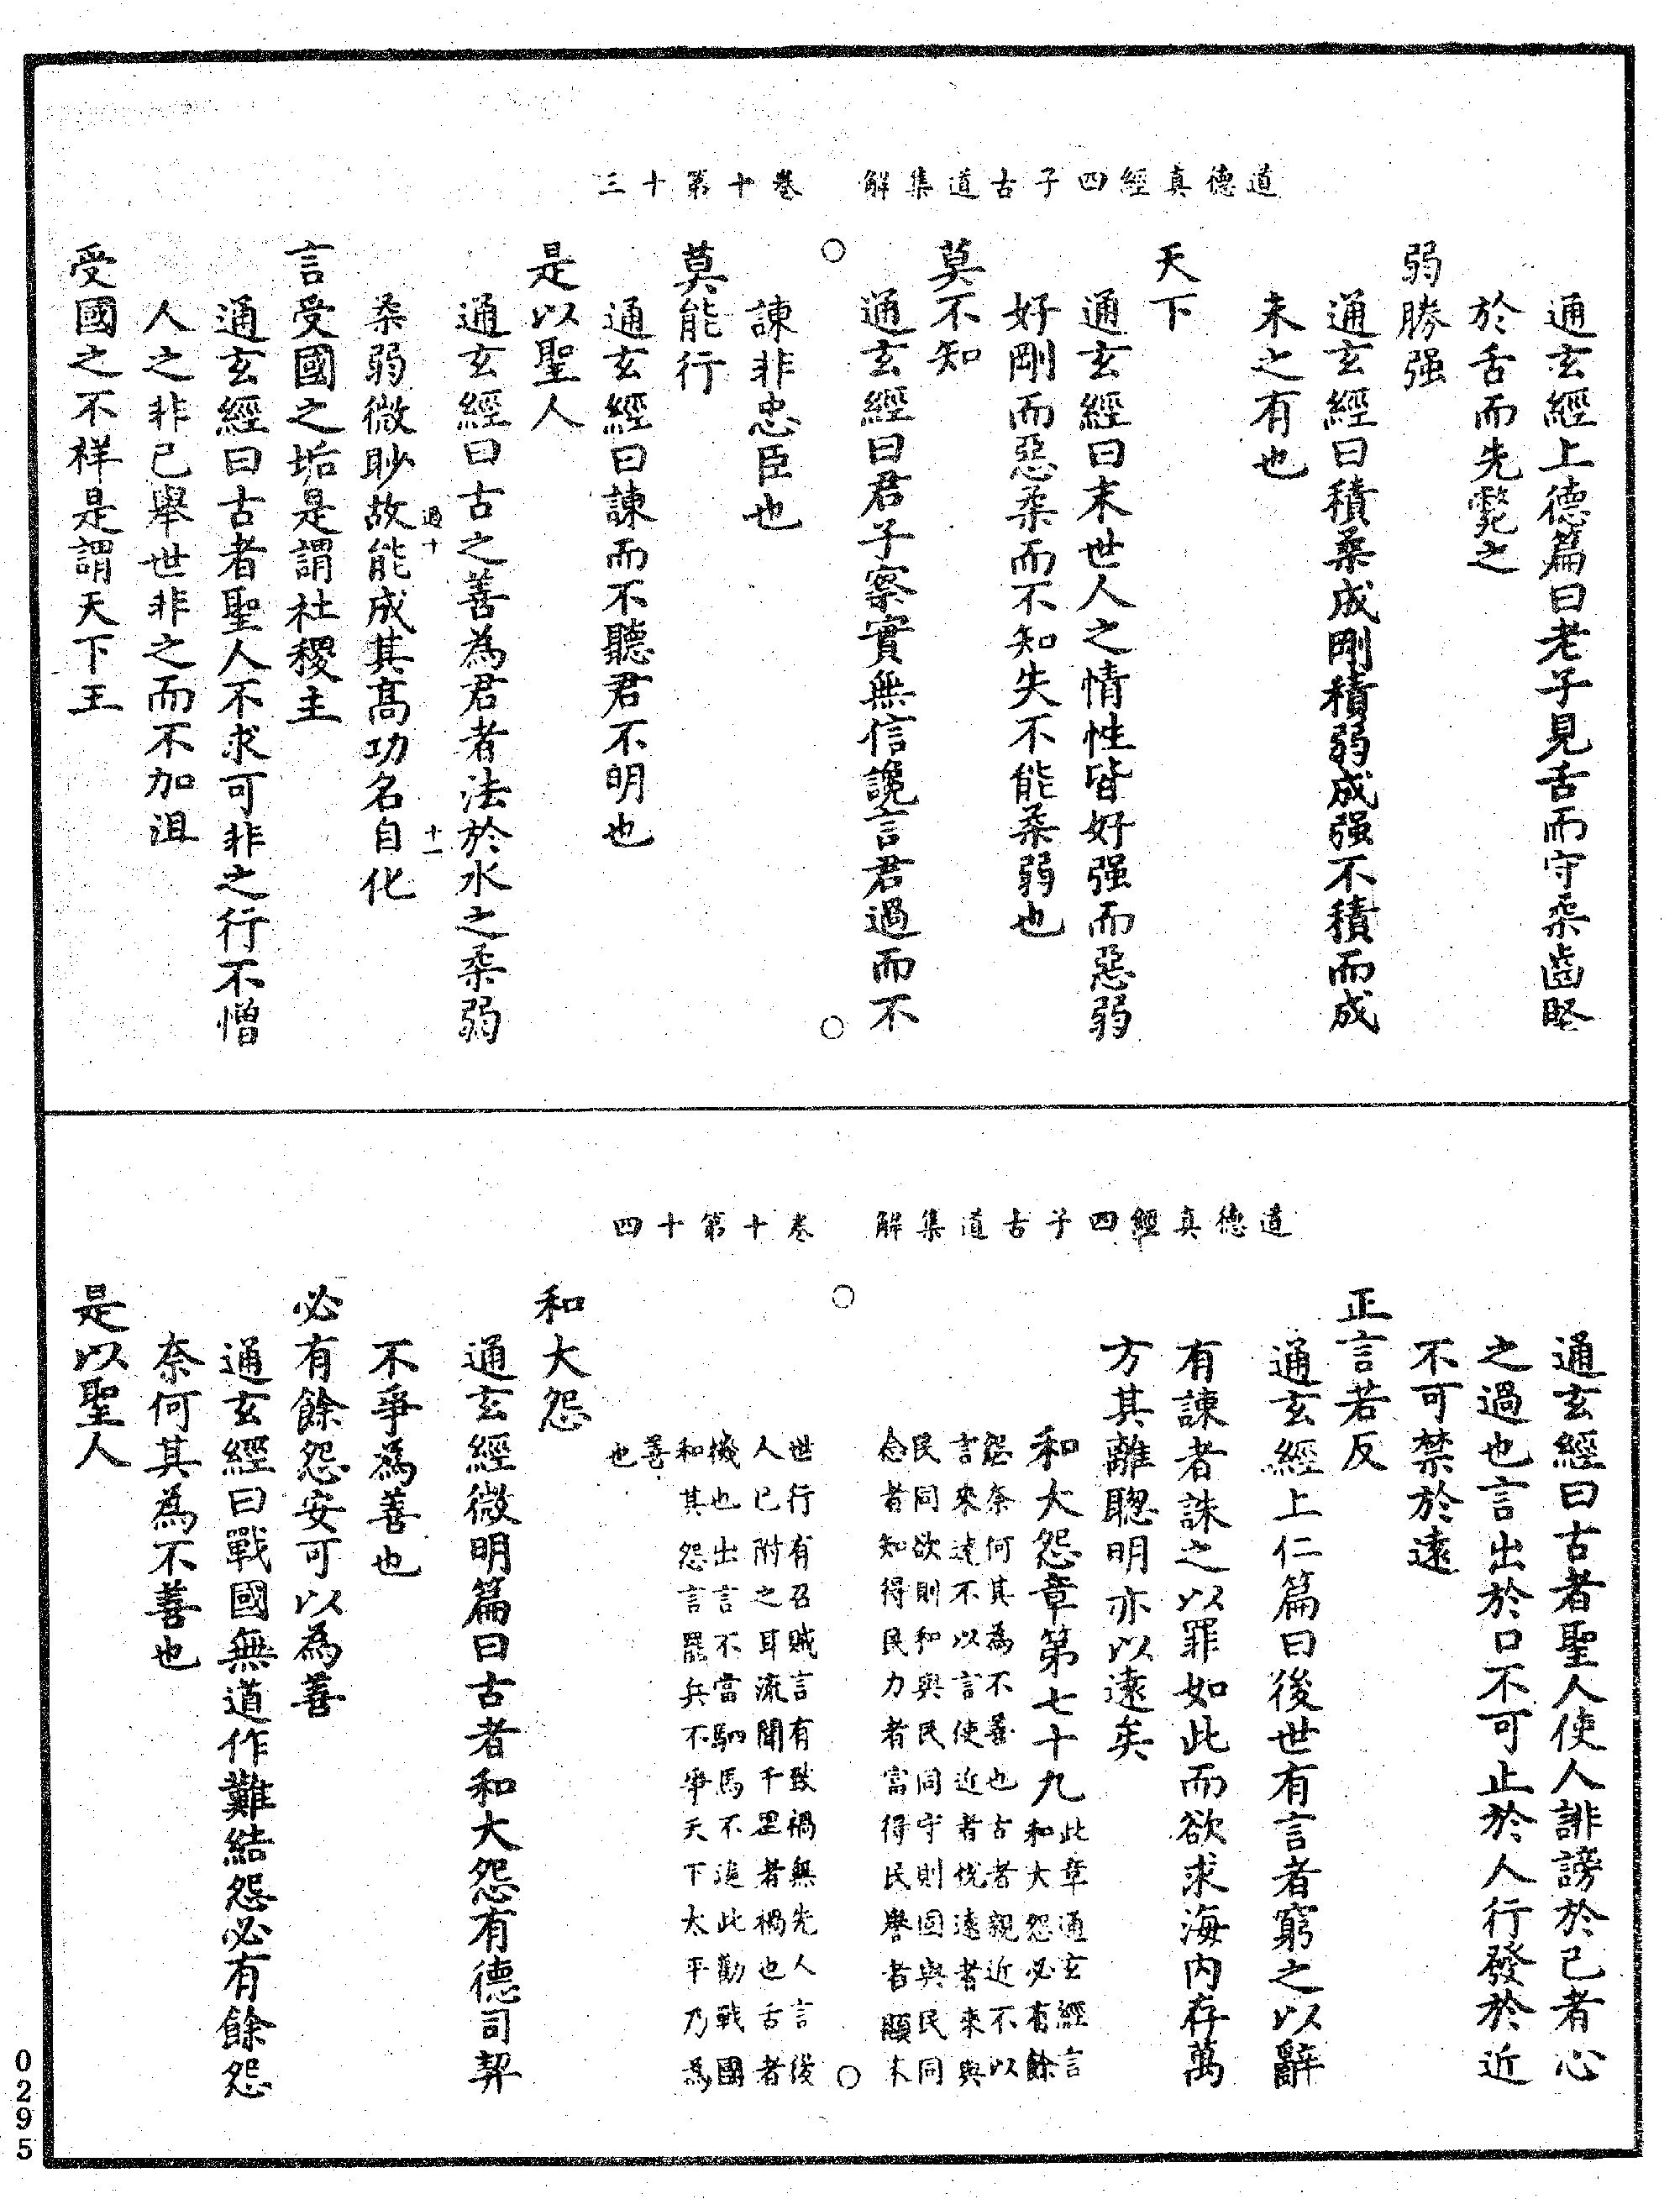 道德真經四子古道集解　卷十第十三
通玄經上德篇曰老子見舌而守柔齒堅
於舌而先斃之
弱勝强
通玄經曰積柔成剛積弱成强不積而成
未之有也
天下
通玄經曰末世人之情性皆好强而惡弱
好剛而惡柔而不知失不能柔弱也
莫不知
通玄經曰君子察實無信讒言君過而不
諫非忠臣也
莫能行
通玄經曰諫而不聽君不明也
是以聖人
通玄經曰古之善為君者法於水之柔弱
過十　十一
柔弱微眇故能成其高功名自化
言受國之垢是謂社稷主
通玄經曰古者聖人不求可非之行不憎
人之非己舉世非之而不加沮
受國之不祥是謂天下王
道德真經四子古道集解　卷十第十四
通玄經曰古者聖人使人誹謗於己者心
之過也言出於口不可止於人行發於近
不可禁於遠
正言若反
通玄經上仁篇曰後世有言者窮之以辭
有諫者誅之以罪如此而欲求海內存萬
方其離聰明亦以遠矣
和大怨章第七十九
此章通玄經言
和大怨必有餘
怨奈何其為不善也古者親近不以
言來遠不以言使近者悅遠者來與
民同欲則和與民同守則固與民同
念者知得民力者富得民譽者顯末
世行有召賊言有致禍無先人言後
人已附之耳流聞千里者禍也舌者
機也出言不當駟馬不追此勸戰國
和其怨言罷兵不爭天下太平乃為
善
也
和大怨
通玄經微明篇曰古者和大怨有德司契
不爭為善也
必有餘怨安可以為善
通玄經曰戰國無道作難結怨必有餘怨
奈何其為不善也
是以聖人
0295